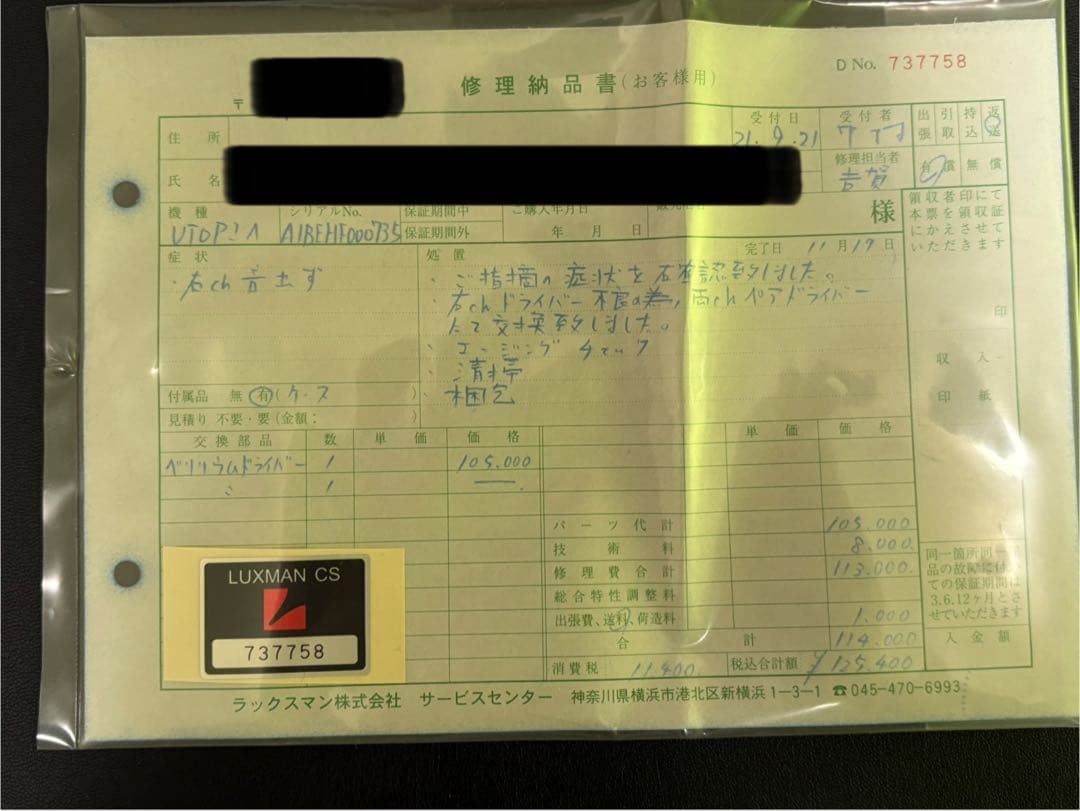 修理納品書(お客様用)
D No. 737758
〒
住所
受付日
21.9.21
受付者
出張 引取 持込 返送
氏名
修理担当者
吉賀
有償 無償
様
領収者印にて
本票を領収証
にかえさせて
いただきます
機種
UTOPIA
シリアルNo.
A1BEHF000735
保証期間中
保証期間外
ご購入年月日
年 月 日
症状
右ch 音出ず
処置
完了日 11月19日
・ご指摘の症状を確認致しました。
・右chドライバー不良の為、両chペアドライバー
にて交換致しました。
・エージングチェック
・清掃
・梱包
印
収入
印紙
付属品 無 有(ケース )
見積り 不要・要(金額: )
交換部品 数 単価 価格 単価 価格
ベリリウムドライバー 1 105.000
〃 1 ―
パーツ代計 105.000
技術料 8.000
修理費合計 113.000
総合特性調整料
出張費、送料、荷造料 1.000
合計 114.000
消費税 11.400 税込合計額 ¥125,400
同一箇所同一部
品の故障に付い
ての保証期間は
3.6.12ヶ月とさ
せていただきます
入金額
LUXMAN CS
737758
ラックスマン株式会社 サービスセンター 神奈川県横浜市港北区新横浜1-3-1 ☎045-470-6993